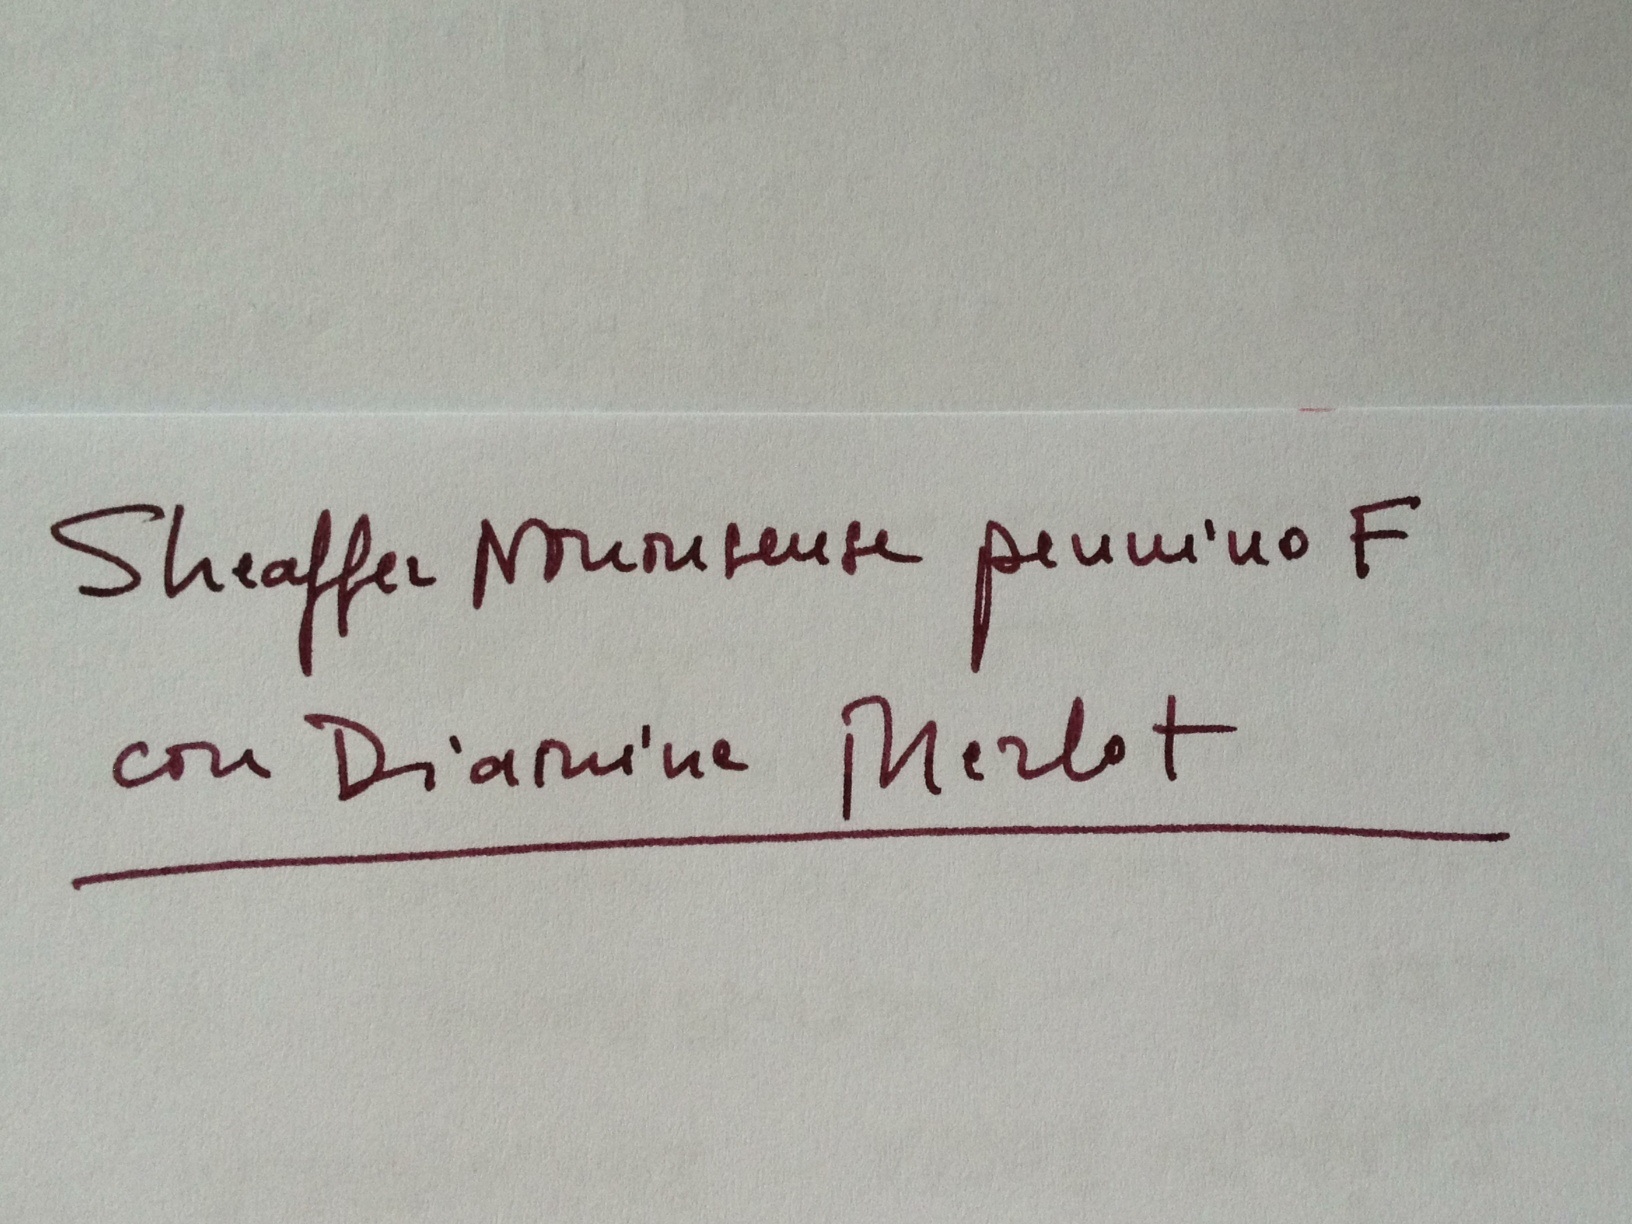 Sheaffer Nononsense pennino F
con Diamine Merlot